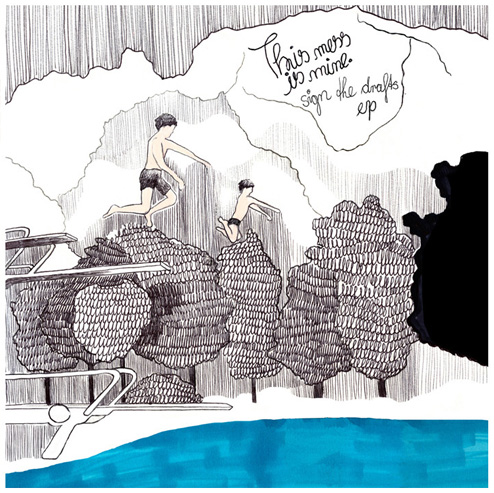 This mess
is mine.
sign the drafts
ep